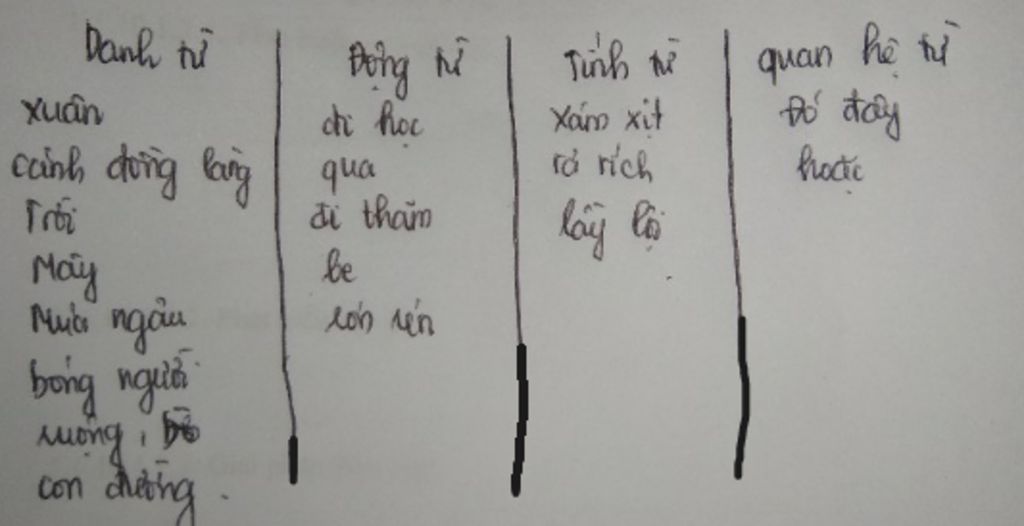 Danh từ
xuân
cánh đồng làng
Trời
Mây
Mưa ngâu
bóng người
ruộng, bờ
con đường.
Động từ
đi học
qua
đi thăm
be
rón rén
Tính từ
xám xịt
rả rích
lầy lội
quan hệ từ
Đó đây
hoặc